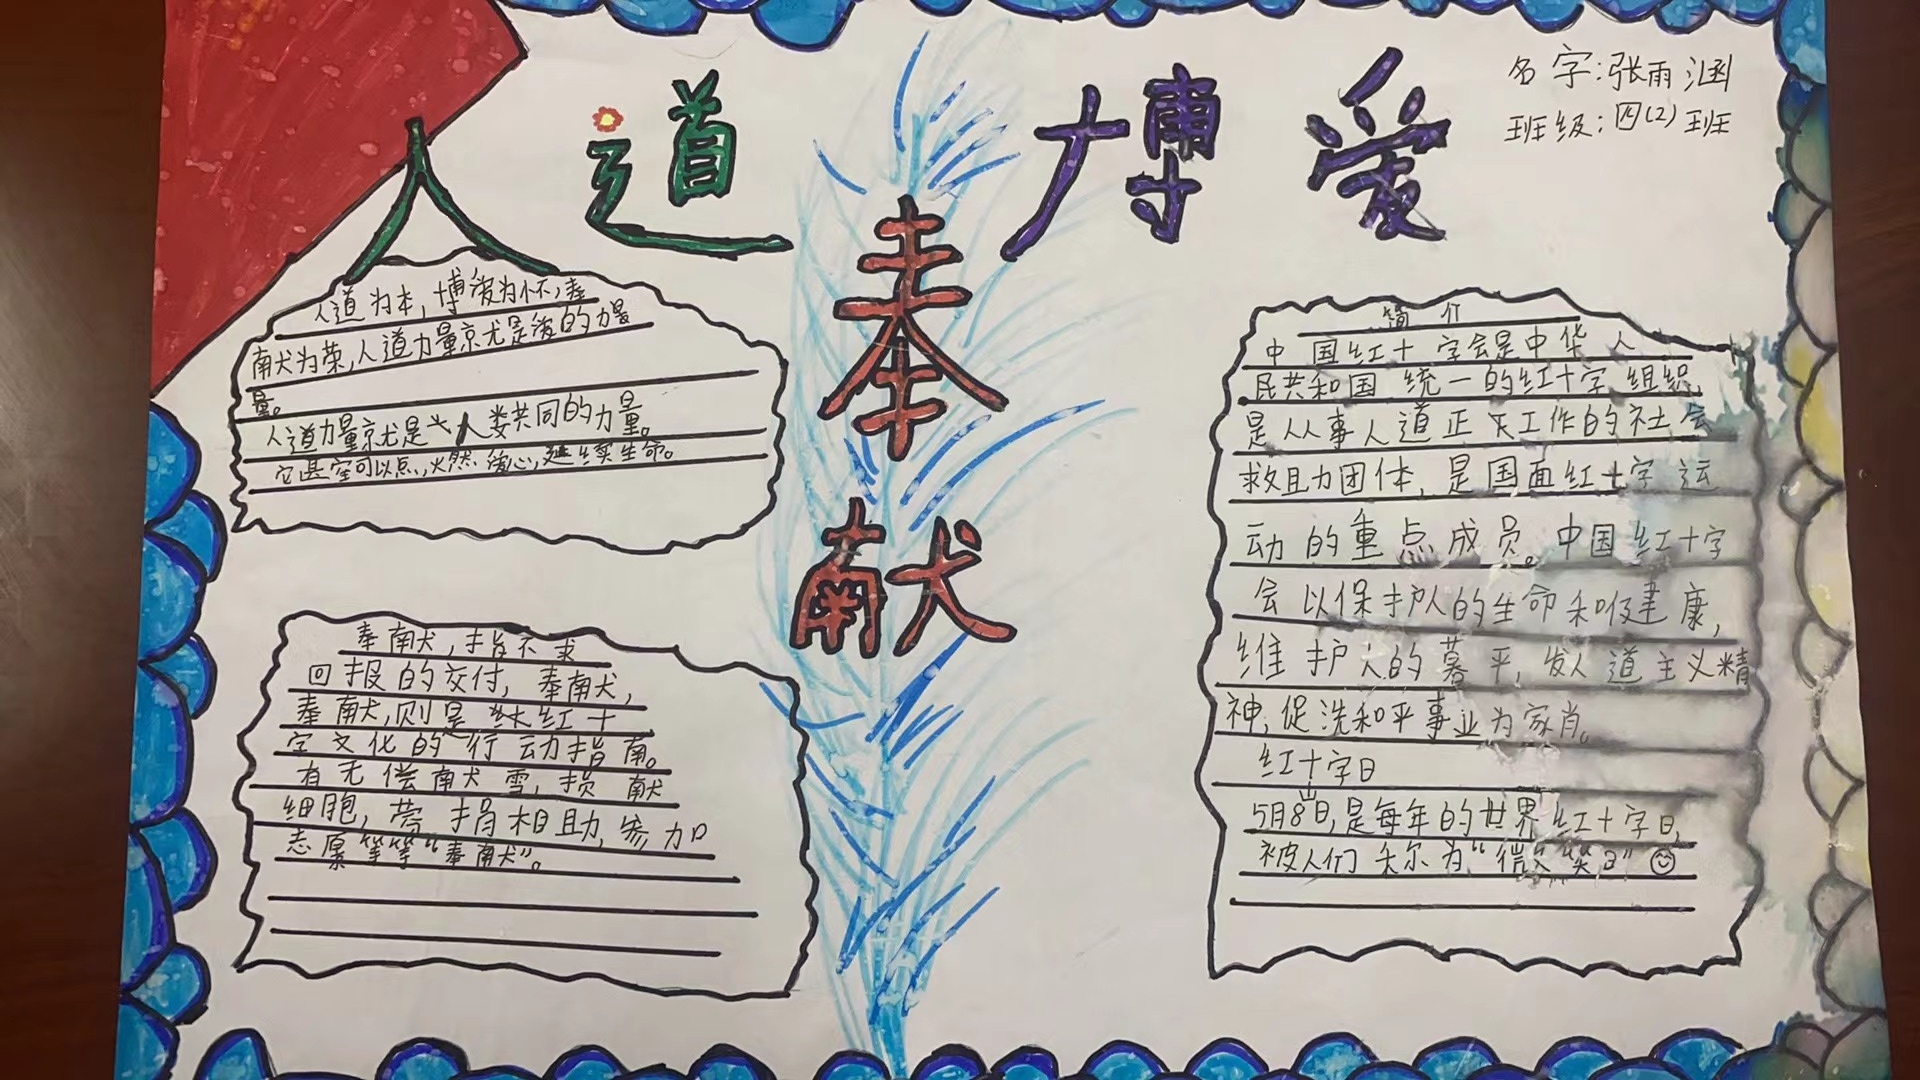 人道
博爱
奉献
名字:张雨涵
班级:四(2)班
人道为本,博爱为怀,奉
献为荣,人道力量就是爱的力量
量。
人道力量就是人类共同的力量。
它甚至可以点,火然爱心,延续生命。
奉献,指不求
回报的交付,奉献,
奉献,则是红十
字文化的行动指南。
有无偿献雪,损献
细胞,捐相助,参加
志愿等等“奉献”。
简介
中国红十字会是中华人
民共和国统一的红十字组织,
是从事人道正工作的社会
救助团体,是国面红十字运
动的重点成员。中国红十字
会以保护人的生命和健康,
维护人的平,发人道主义精
神,促洗和平事业为家肖。
红十字日
5月8日,是每年的世界红十字日,
被人们为“微笑日”